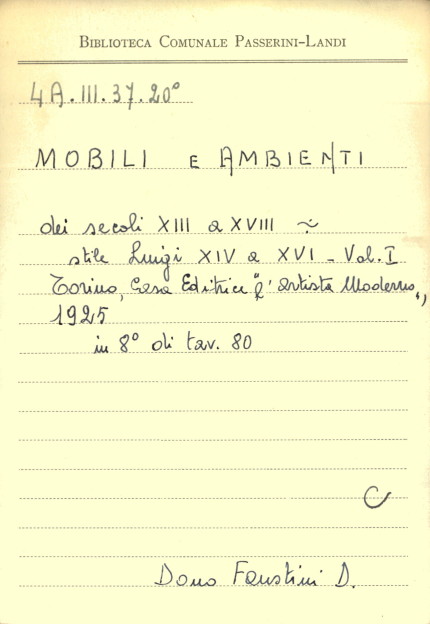 BIBLIOTECA COMUNALE PASSERINI-LANDI
4A.III.37.20°
MOBILI E AMBIENTI
dei secoli XIII a XVIII ~
stile Luigi XIV a XVI - Vol. I
Torino, Casa Editrice "l'Artista Moderno",
1925
in 8° di tav. 80
C
Dono Faustini D.